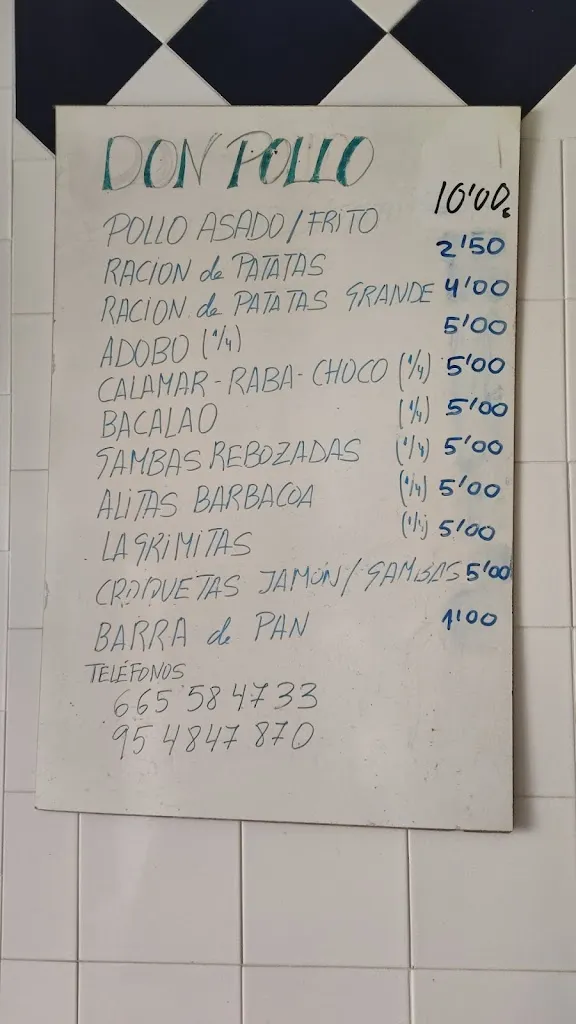 DON POLLO
POLLO ASADO/FRITO 10'00€
RACION de PATATAS 2'50
RACION de PATATAS GRANDE 4'00
ADOBO (1/4) 5'00
CALAMAR-RABA-CHOCO (1/4) 5'00
BACALAO (1/4) 5'00
GAMBAS REBOZADAS (1/4) 5'00
ALITAS BARBACOA (1/4) 5'00
LAGRIMITAS (1/4) 5'00
CROQUETAS JAMÓN/GAMBAS 5'00
BARRA de PAN 1'00
TELÉFONOS
665 58 47 33
95 4847 870